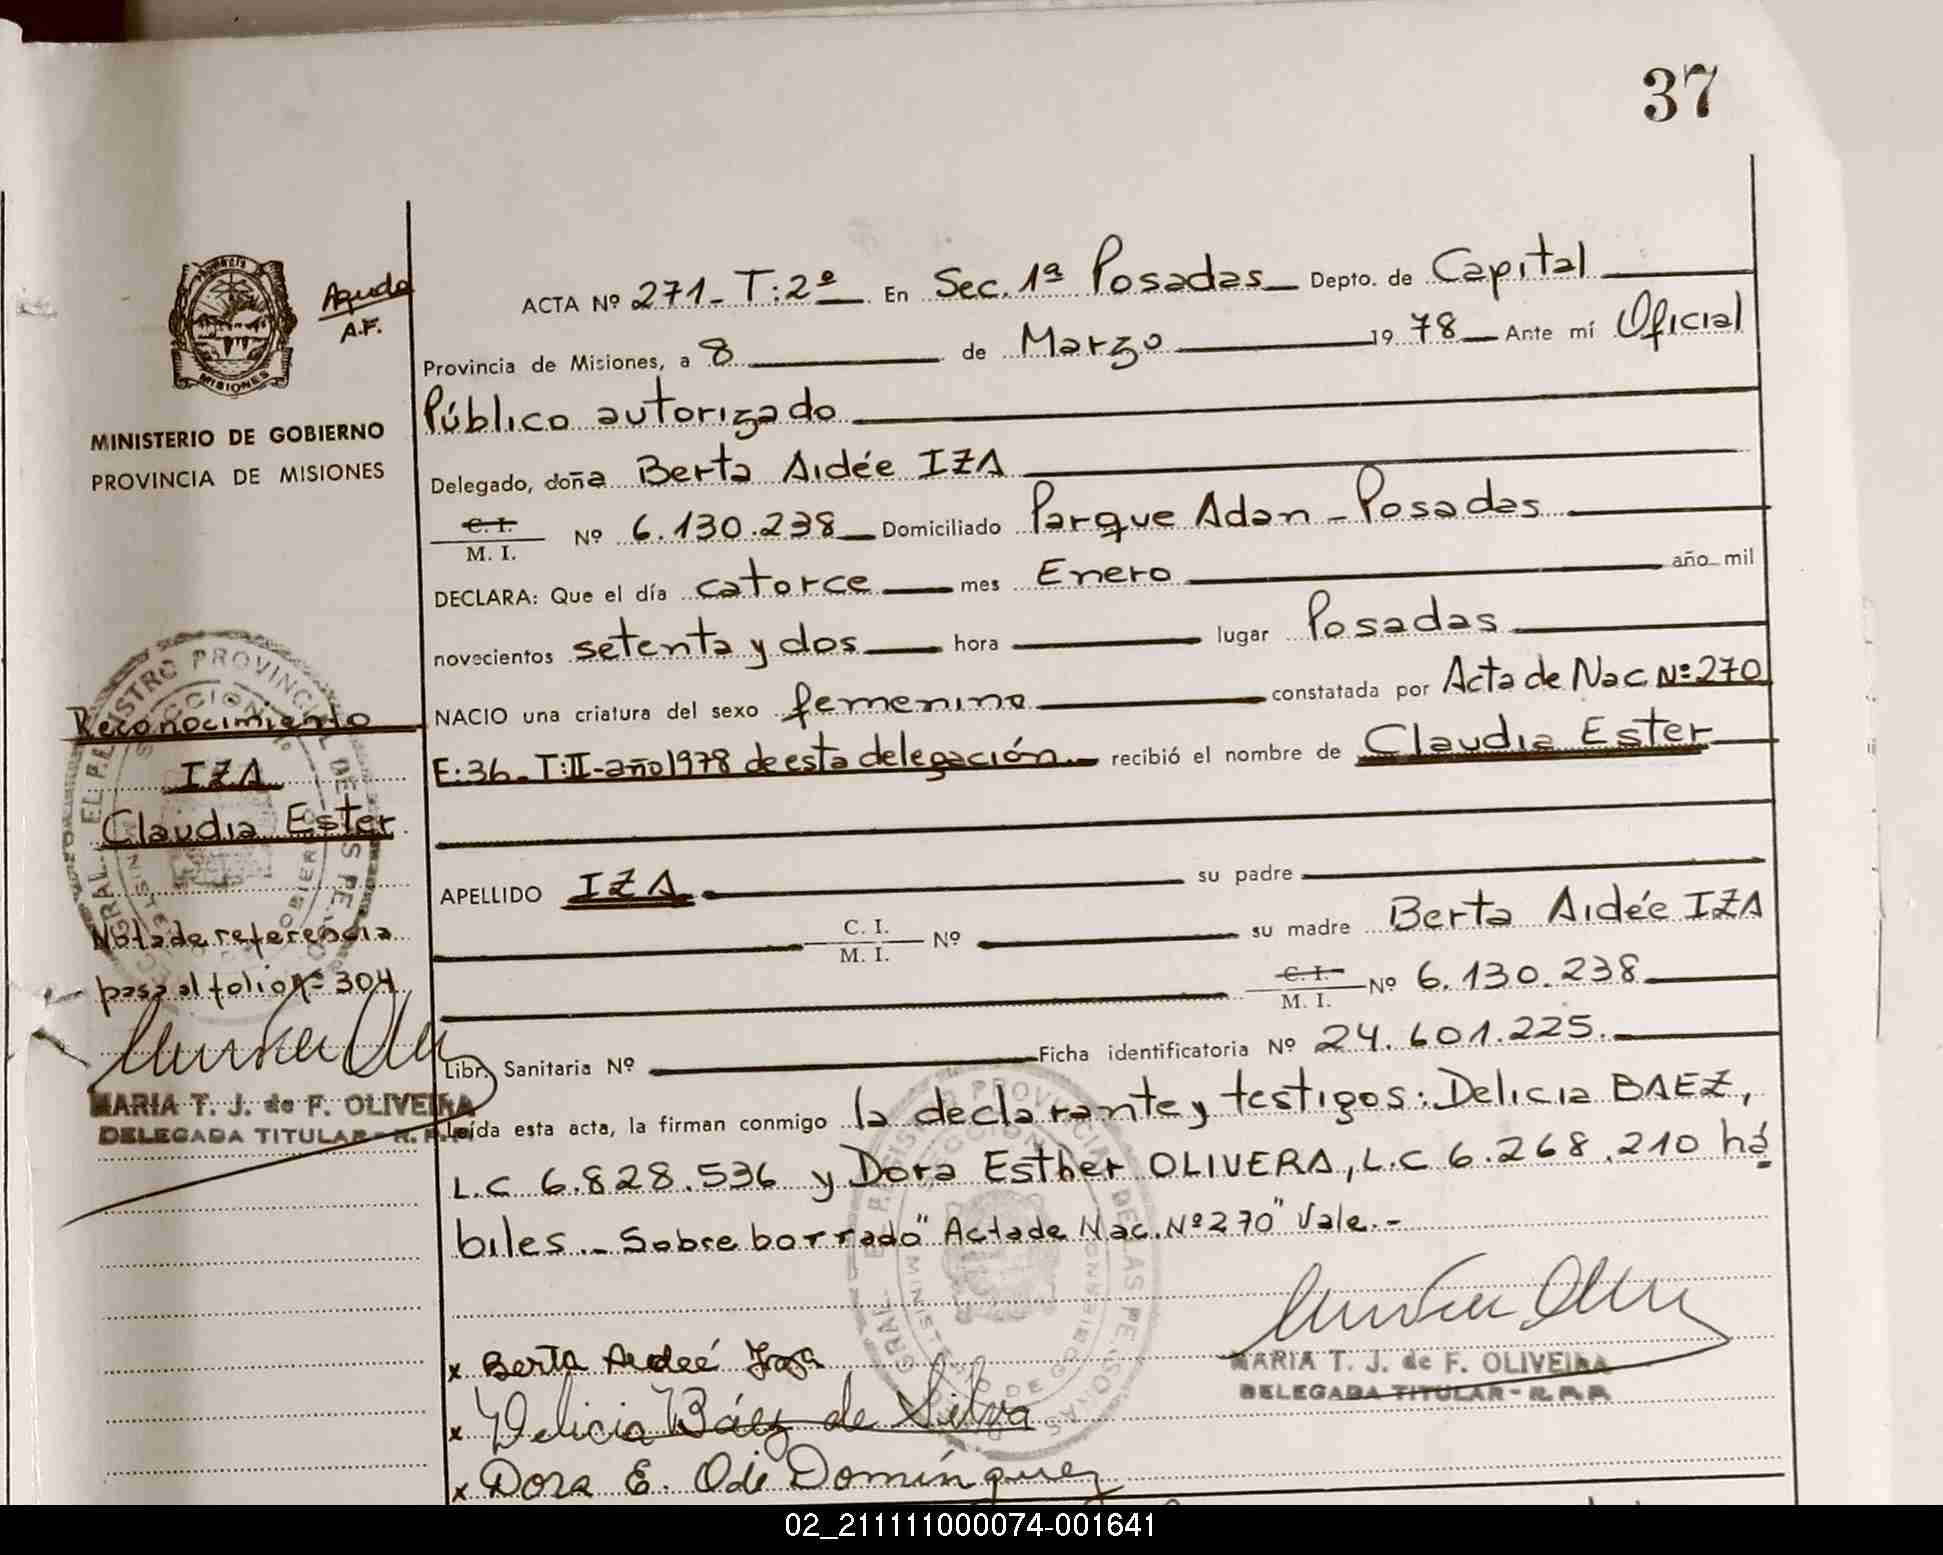 37
PROVINCIA
MISIONES
Aguda
A.F.
MINISTERIO DE GOBIERNO
PROVINCIA DE MISIONES
ACTA Nº 271_ T:2º_ En Sec. 1ª Posadas_ Depto. de Capital
Provincia de Misiones, a 8 de Marzo 1978_ Ante mí Oficial
Público autorizado
Delegado, doña Berta Aidée IZA
C. I.
M. I. Nº 6.130.238_ Domiciliado Parque Adan_Posadas
DECLARA: Que el día catorce mes Enero año mil
novecientos setenta y dos hora lugar Posadas
NACIO una criatura del sexo femenino constatada por Acta de Nac. Nº 270
F:36_T:II-año1978 de esta delegación_ recibió el nombre de Claudia Ester
APELLIDO IZA su padre
C. I.
M. I. Nº su madre Berta Aidée IZA
C. I.
M. I. Nº 6.130.238
Libr. Sanitaria Nº Ficha identificatoria Nº 24.601.225.
Leída esta acta, la firman conmigo la declarante y testigos: Delicia BAEZ,
L.C 6.828.536 y Dora Esther OLIVERA, L.C 6.268.210 há
biles._ Sobreborrado "Acta de Nac. Nº 270" Vale.-
Reconocimiento
IZA
Claudia Ester
Nota de referencia
pasa al folio nº 304
MARIA T. J. de F. OLIVEIRA
DELEGADA TITULAR - R. P. P.
x Berta Aideé Iza
x Delicia Báez de Silva
x Dora E. O. de Domínguez
MARIA T. J. de F. OLIVEIRA
DELEGADA TITULAR - R. P. P.
02_211111000074-001641